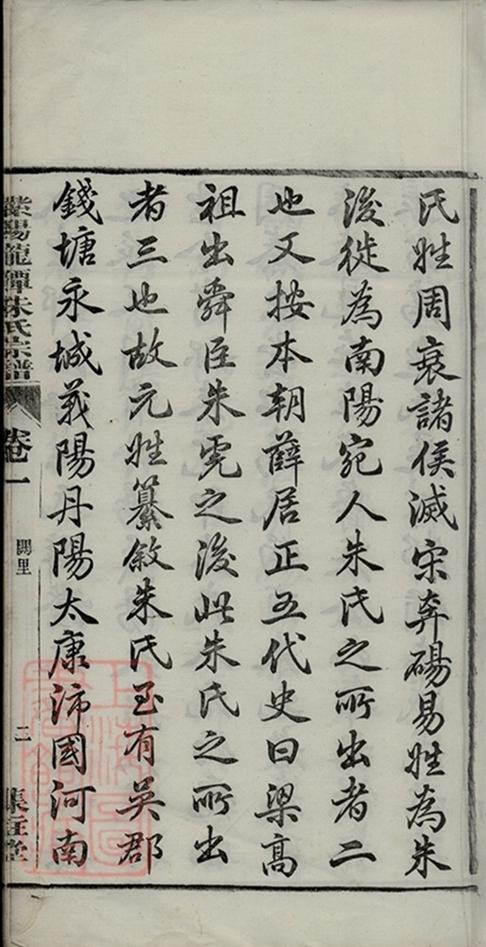 氏姓周衰諸侯滅宋奔碭易姓為朱
後徙為南陽宛人朱氏之所出者二
也又按本朝薛居正五代史曰梁高
祖出舜臣朱虎之後此朱氏之所出
者三也故元姓纂敘朱氏至有吳郡
錢塘永城義陽丹陽太康沛國河南
紫陽龍潭朱氏宗譜
卷一
闕里
二